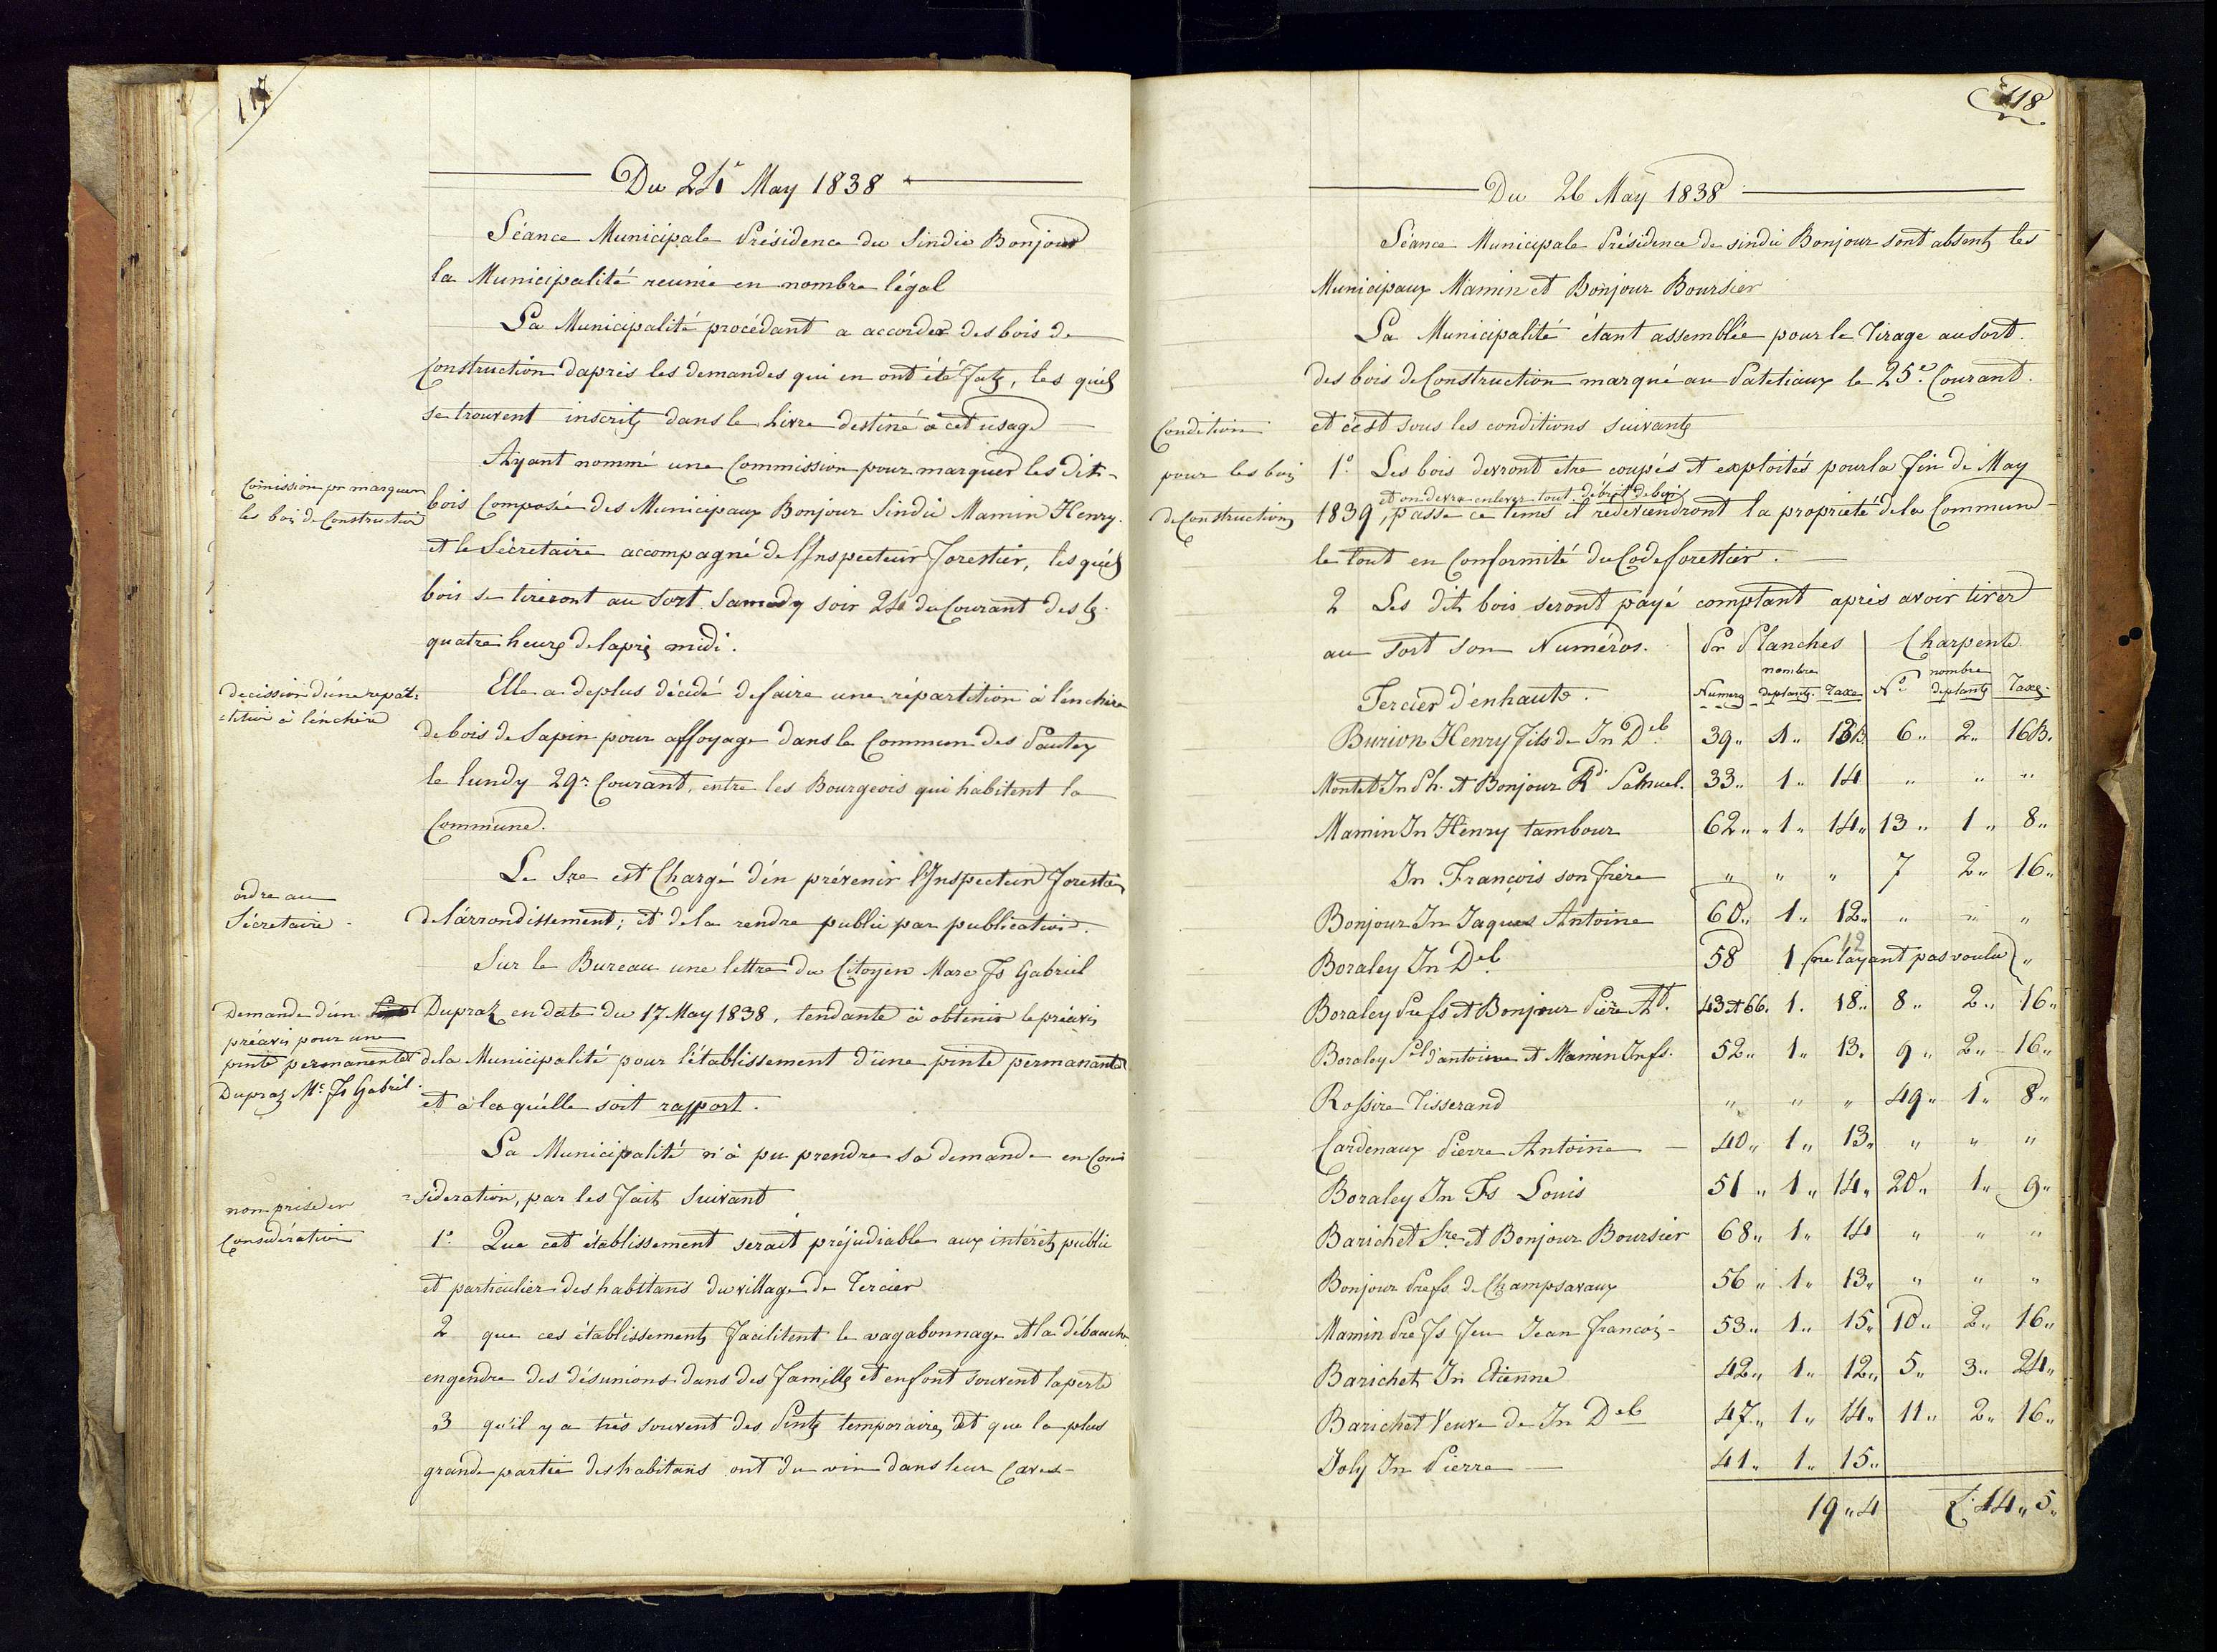 117
Du 21e May 1838
Séance Municipale Présidence du Sindic Bonjour
la Municipalité reunie en nombre légal
La Municipalité procédant a accorder des bois de
Construction daprès les demandes qui en ont été faits, les quéls
se trouvent inscrits dans le Livre destiné à cet usage
Ayant nommé une Commission pour marquer les dits
Comission pr marquer
les bois de Construction
bois Composée des Municipaux Bonjour Sindic Mamin Henry.
et le Sécretaire accompagné de l'Inspecteur forestier, les quéls
bois se tireront au sort Samedy soir 26 du Courant des les
quatre heures de laprès midi.
decission d'une repar-
tition à lénchère
Elle a deplus décidé de faire une répartition à lénchère
de bois de Sapin pour affoyage dans la Commun des Pautex
le lundy 29e Courant, entre les Bourgeois qui habitent la
Commune.
ordre au
Sécretaire
Le Sre est Chargé d'en prévenir l'Inspecteur forestier
de lárrondissement; et de la rendre public par publication.
Sur le Bureau une lettre du Citoyen Marc Fs Gabriel
demande d'un
préavis pour une
pinte permanente
Dupraz Mc Fs Gabriel
Dupraz en date du 17 May 1838, tendante à obtenir le préavis
de la Municipalité pour létablissement d'une pinte permanante
et à laquélle soit rapport.
La Municipalité n'à pu prendre sa demande en Con
non prise en
Considération
-sideration, par les faits suivant
1o Que cet établissement serait préjudiable aux intérêts public
et particulier des habitans du village de Tercier
2 que ces établissements facilitent le vagabonnage et la débauche
engendre des désunions dans des familles et en font souvent la perte
3 qu'il y a très souvent des Pintes temporaires, et que la plus
grande partie des habitans ont du vin dans leur Caves-
118
Du 26 May 1838
Séance Municipale Présidence de sindic Bonjour sont absents les
Municipaux Mamin et Bonjour Boursier
La Municipalité étant assemblée pour le Tirage au sort.
des bois de Construction marqué au Pateliaux le 25e. Courant.
Condition
pour les bois
de Construction
et cést sous les conditions suivants
1o Les bois devront etre coupés et exploités pour la fin de May
et on devra enlever tout débris de bois
1839, passé ce tems il redeviendront la propriété de la Commune
le tout en Conformité du Code forestier.
2 Les dits bois seront payé comptant après avoir tirer
au sort son Numéros. Pr Planches Charpente
Tercier d'enhaut. Numeros nombre de plantes. Taxe No nombre de plantes Taxes
Burion Henry fils de Jn Del 39 " 1 " 13B. 6 " 2 " 16B.
Montet Jn Ph. et Bonjour Rd Samuel. 33 " 1 " 14 " " "
Mamin Jn Henry tambour 62 " 1 " 14 " 13 " 1 " 8 "
Jn François son frère " " " 7 2 " 16 "
Bonjour Jn Jaques Antoine 60 " 1 " 12 " " " "
Boraley Jn Del 58 1 12 (ne layant pas voulu) "
Boraley Prefs et Bonjour Pière At. 43 et 66. 1. 18 " 8 " 2 " 16 "
Boraley Sel d'antoine et Mamin Jn fs. 52 " 1 " 13 " 9 " 2 " 16 "
Rossire Tisserand " " " 49 " 1 " 8 "
Cardenaux Pierre Antoine 40 " 1 " 13 " " " "
Boraley Jn Fs Louis 51 " 1 " 14 " 20 " 1 " 9 "
Barichet Sre et Bonjour Boursier 68 " 1 " 14 " " "
Bonjour Prefs. de Champsavaux 56 " 1 " 13 " " " "
Mamin Pre Fs feu Jean françois- 53 " 1 " 15 " 10 " 2 " 16 "
Barichet Jn Etienne 42 " 1 " 12 " 5 " 3 " 24 "
Barichet Veuve de Jn Del 47 " 1 " 14 " 11 " 2 " 16 "
Joly Jn Pierre 41 " 1 " 15 "
19 " 4 £. 14 " 5 "